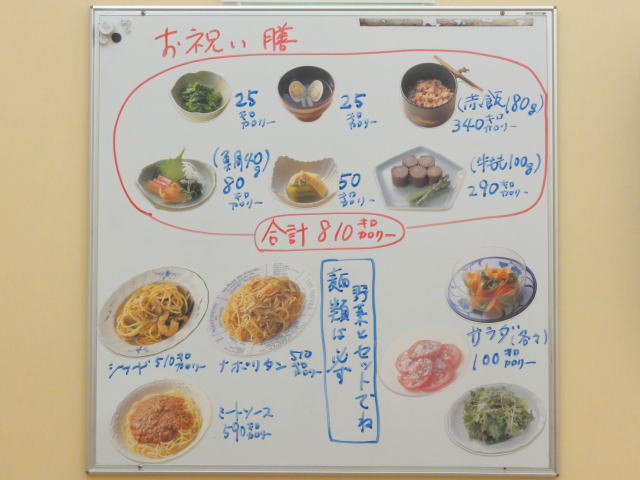 お祝い膳
25
キロ
カロリー
25
キロ
カロリー
(赤飯180g)
340キロカロリー
40g)
80
キロ
カロリー
50
キロ
カロリー
(牛もも100g)
290キロカロリー
合計810キロカロリー
510キロカロリー
ナポリタン510キロカロリー
ミートソース
590キロカロリー
麺類は必ず
野菜とセットでね
サラダ(各々)
100キロカロリー